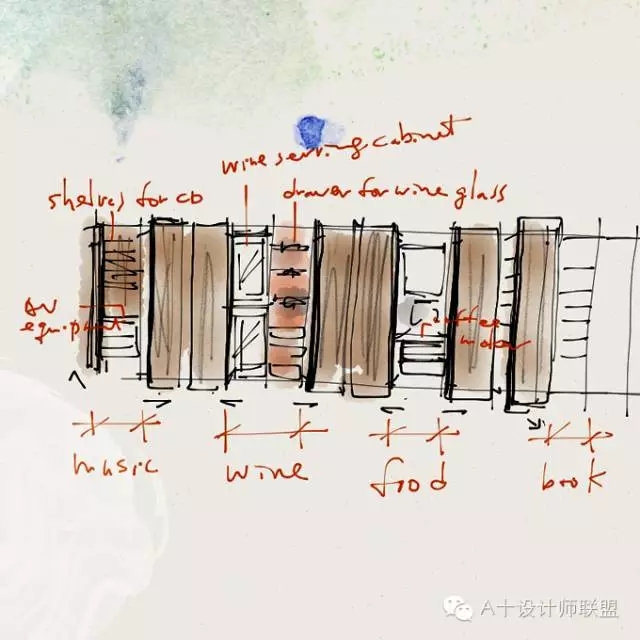 wine serving cabinet
shelves for CD
drawer for wine glass
AV
equipment
coffee
maker
music
wine
food
book
A十设计师联盟